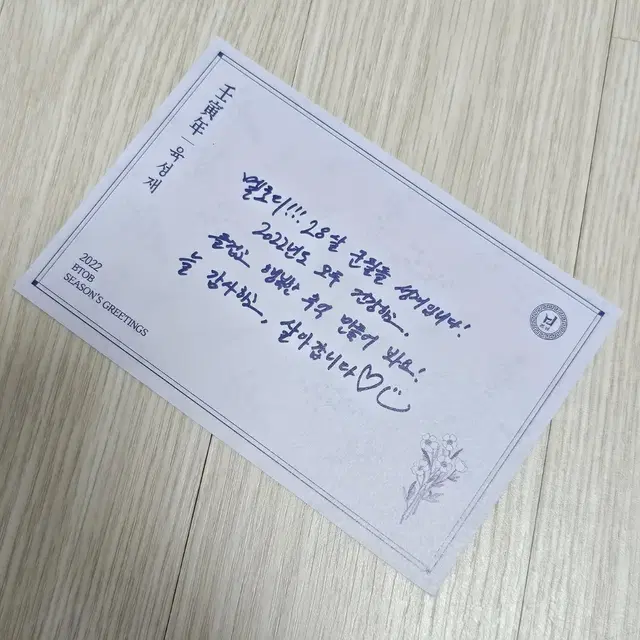 壬寅年 육성재
멜로디!!! 28살 군필돌 성재입니다!
2022년도 모두 건강하고,
즐겁고 행복한 추억 만들어 봐요!
늘 감사하고, 사랑합니다♡
2022
BTOB
SEASON'S GREETINGS